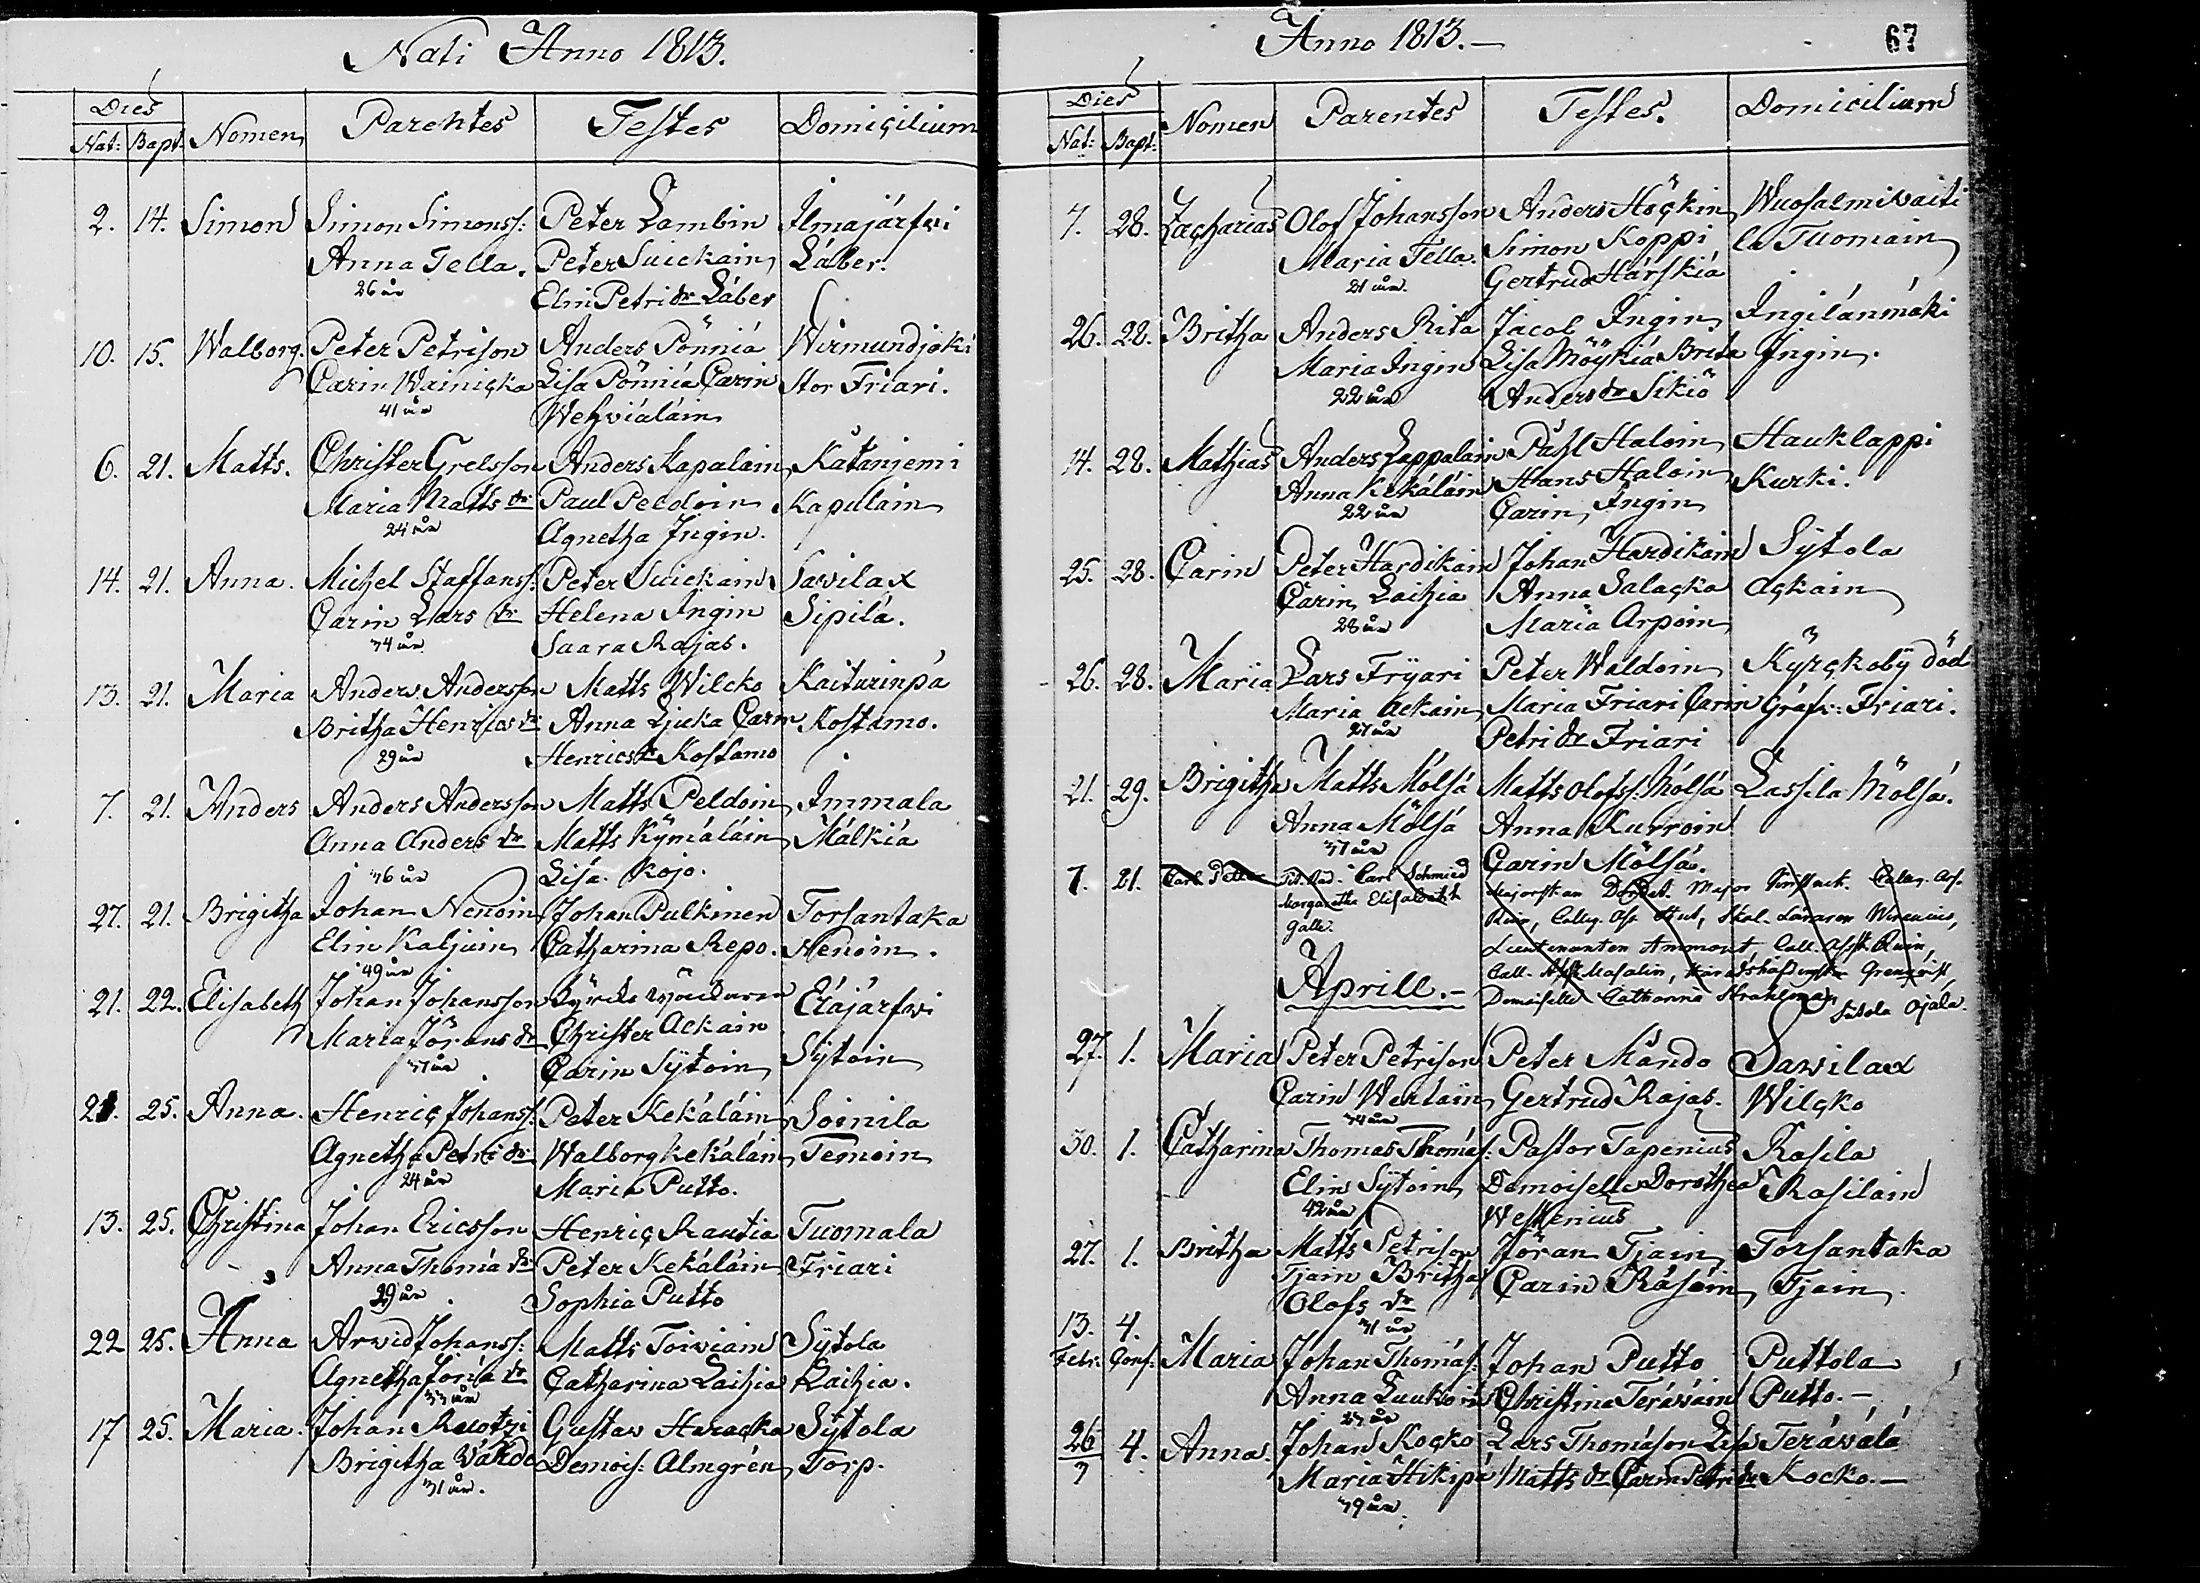 Nati Anno 1813.
Dies
Nat: Bapt. Nomen Parentes Testes Domicilium
2. 14. Simon Simon Simonss: Peter Lambin Ilmajärfwi
Anna Tella. Peter Suickain Läber.
26 år Elin Petri dr Läber
10. 15. Walborg. Peter Petrison Anders Pönniä Wirmundjoki
Carin Wainicka Lisa Pönniä Carin Stor Friari.
41 år Wehviäläin
6. 21. Matts. Christer Grelsson Anders Kapalain Kätänjemi
Maria Matts dr Paul Peldoin Kapulain
24 år Agnetha Ingin.
14. 21. Anna. Michel Staffanss: Peter Suickain Sawilax
Carin Lars dr Helena Ingin Sipilä.
34 år Saara Rajas.
13. 21. Maria Anders Andersson Matts Wilcko Kaiturinpä
Britha Henrics dr Anna Ljuka Carin Kostamo.
29 år Henrics dr Kostamo
7. 21. Anders Anders Andersson Matts Peldoin Immala
Anna Anders dr Matts Kymäläin Mälkiä
36 år Lisa Kojo.
27. 21. Brigitha Johan Nenoin Johan Pulkinen Torsantaka
Elin Kaljuin Catharina Repo. Nenoin.
49 år
21. 22. Elisabeth Johan Johansson Eiäjärfwi
Maria Jörans dr Christer Ackain
37 år Carin Sytoin Sytoin
21. 25. Anna. Henric Johanss: Peter Kekäläin Soinila
Agnetha Petri dr Walborg Kekäläin Temoin
24 år Maria Putto.
13. 25. Christina Johan Ericsson Henric Rautia Tuomala
Anna Thomä dr Peter Kekäläin Friari
29 år Sophia Putto
22 25. Anna Arvid Johanss: Matts Toiviain Sytola
Agnetha Jöriä dr Catharina Laihia Laihia.
33 år
17 25. Maria. Johan Ruotzi Gustav Haracka Sytola
Brigitha Wäkde Demois: Almgrén Torp.
31 år.
Anno 1813.— 67
Dies
Nat: Bapt: Nomen Parentes Testes. Domicilium
7. 28. Zacharias Olof Johansson Anders Höckin Wuosalmiwaiti
Maria Tella. Simon Koppi la Tuomain
21 år. Gertrud Härskiä
26. 28. Britha Anders Rita Jacob Ingin Ingilänmäki
Maria Ingin Lisa Möykiä Brita Ingin.
22 år Anders dr Sikiö
14. 28. Mathias Anders Lappalain Påhl Haloin Hauklappi
Anna Kekäläin Hans Haloin Kurki.
22 år Carin Ingin
25. 28. Carin Peter Hardikain Johan Hardikain Sytola
Carin Laihia Anna Salacka Ackain
28 år Maria Arpoin
26. 28. Maria Lars Fryari Peter Waldoin Kyrckoby död
Maria Ackain Maria Friari Carin Gräfv: Friari.
27 år Petri dr Friari
21. 29. Brigitha Matts Mölsä Matts Olofss: Mölsä Lassila Mölsä.
Anna Mölsä Anna Kurroin
37 år Carin Mölsä.
7. 21. Carl Petter Tit. Råd. Carl Schmied Majorskan Major
Margaretha Elisabeth
Galle. Lieutenanten Ammont,
Aprill.— Demoiselle Catharina Strahlman Sutola Ojala.
27. 1. Maria Peter Petrison Peter Mändo Sawilax
Carin Wertain Gertrud Rajas. Wilcko
34 år
30. 1. Catharina Thomas Thomäs: Pastor Tapenius Rasila
Elin Sytoin Demoiselle Dorothea Rasilain
42 år Wessenius
27. 1. Britha Matts Petrison Jöran Tjain Torsantaka
Tjain Britha Carin Räsäin Tjain.
Olofs dr
31 år
13. 4.
Febr. Conf: Maria Johan Thomäs: Johan Putto Puttola
Anna Luukoin Christina Teräwäin Putto.—
27 år
26/3 4. Anna. Johan Kocko Lars Thomäson Lisa Teräwälä
Maria Hikipä Matts dr Carin Petri dr Kocko.—
39 år.